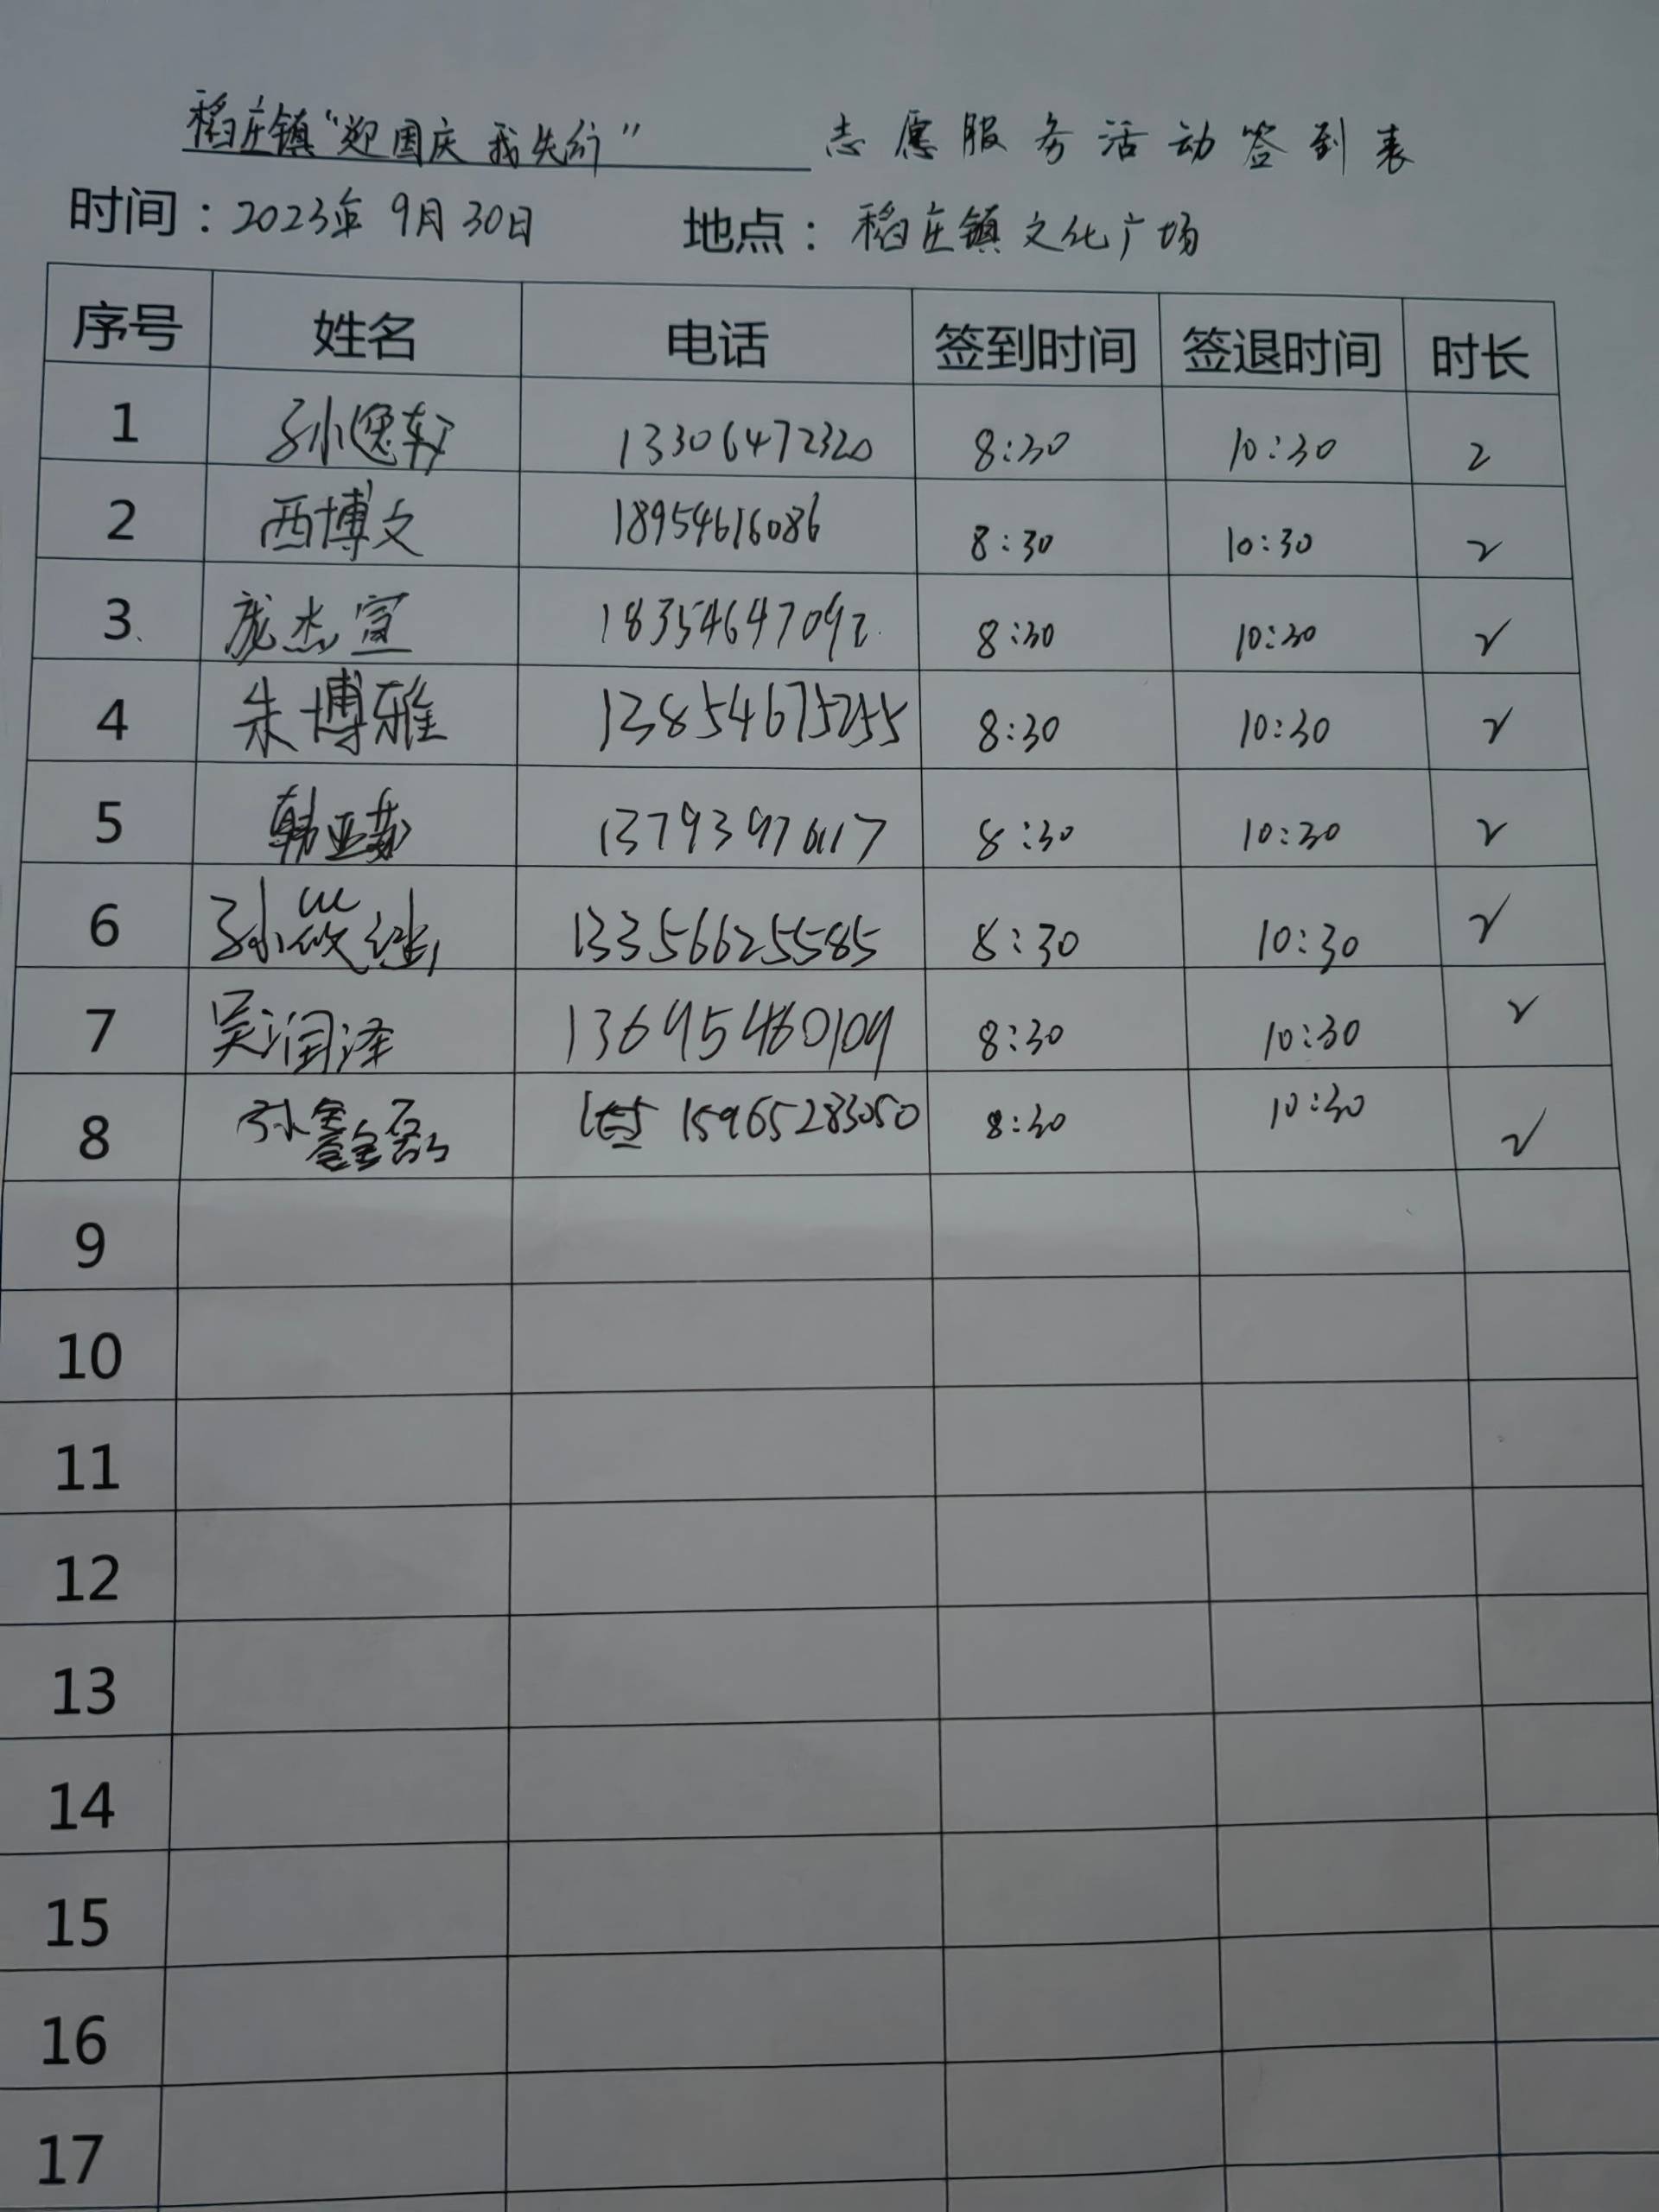 稻庄镇“迎国庆 我先行” 志愿服务活动签到表
时间：2023年9月30日 地点：稻庄镇文化广场
序号 姓名 电话 签到时间 签退时间 时长
1 孙逸轩 13306472320 8:30 10:30 2
2 西博文 18954616086 8:30 10:30 2
3 庞杰宣 18354647092 8:30 10:30 2
4 朱博雅 13854675255 8:30 10:30 2
5 韩亚茹 13793976117 8:30 10:30 2
6 孙筱 13356625585 8:30 10:30 2
7 吴润泽 13695460109 8:30 10:30 2
8 孙鑫磊 15965283050 8:30 10:30 2
9
10
11
12
13
14
15
16
17